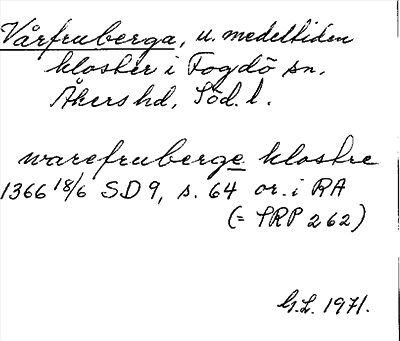 Vårfruberga, u. medeltiden
kloster i Fogdö sn.
Åkers hd, Söd. l.
warefruberge klostre
1366 18/6 SD 9, s. 64 or. i RA
(= SRP 262)
G.L. 1971.